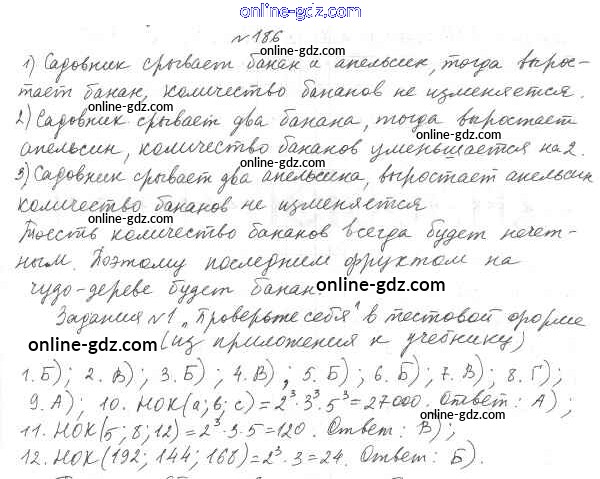 online-gdz.com
№186
online-gdz.com
1) Садовник срывает банан и апельсин, тогда вырос-
тает банан, количество бананов не изменяется.
online-gdz.com
2) Садовник срывает два банана, тогда выростает
апельсин, количество бананов уменьшается на 2.
online-gdz.com
3) Садовник срывает два апельсина, выростает апельсин
количество бананов не изменяется.
online-gdz.com
Тоесть количество бананов всегда будет нечет-
ным. Поэтому последним фруктом на
чудо-дереве будет банан.
online-gdz.com
Задания №1 „Проверьте себя" в тестовой форме
online-gdz.com (из приложения к учебнику)
1. Б); 2. В); 3. Б); 4. В), 5. Б); 6. Б); 7. В); 8. Г);
online-gdz.com
9. А); 10. НОК(a; b; c) = 2³·3³·5³ = 27000. Ответ: А);
11. НОК(5; 8; 12) = 2³·3·5 = 120. Ответ: В);
12. НОК(192; 144; 168) = 2³·3 = 24. Ответ: Б).
online-gdz.com